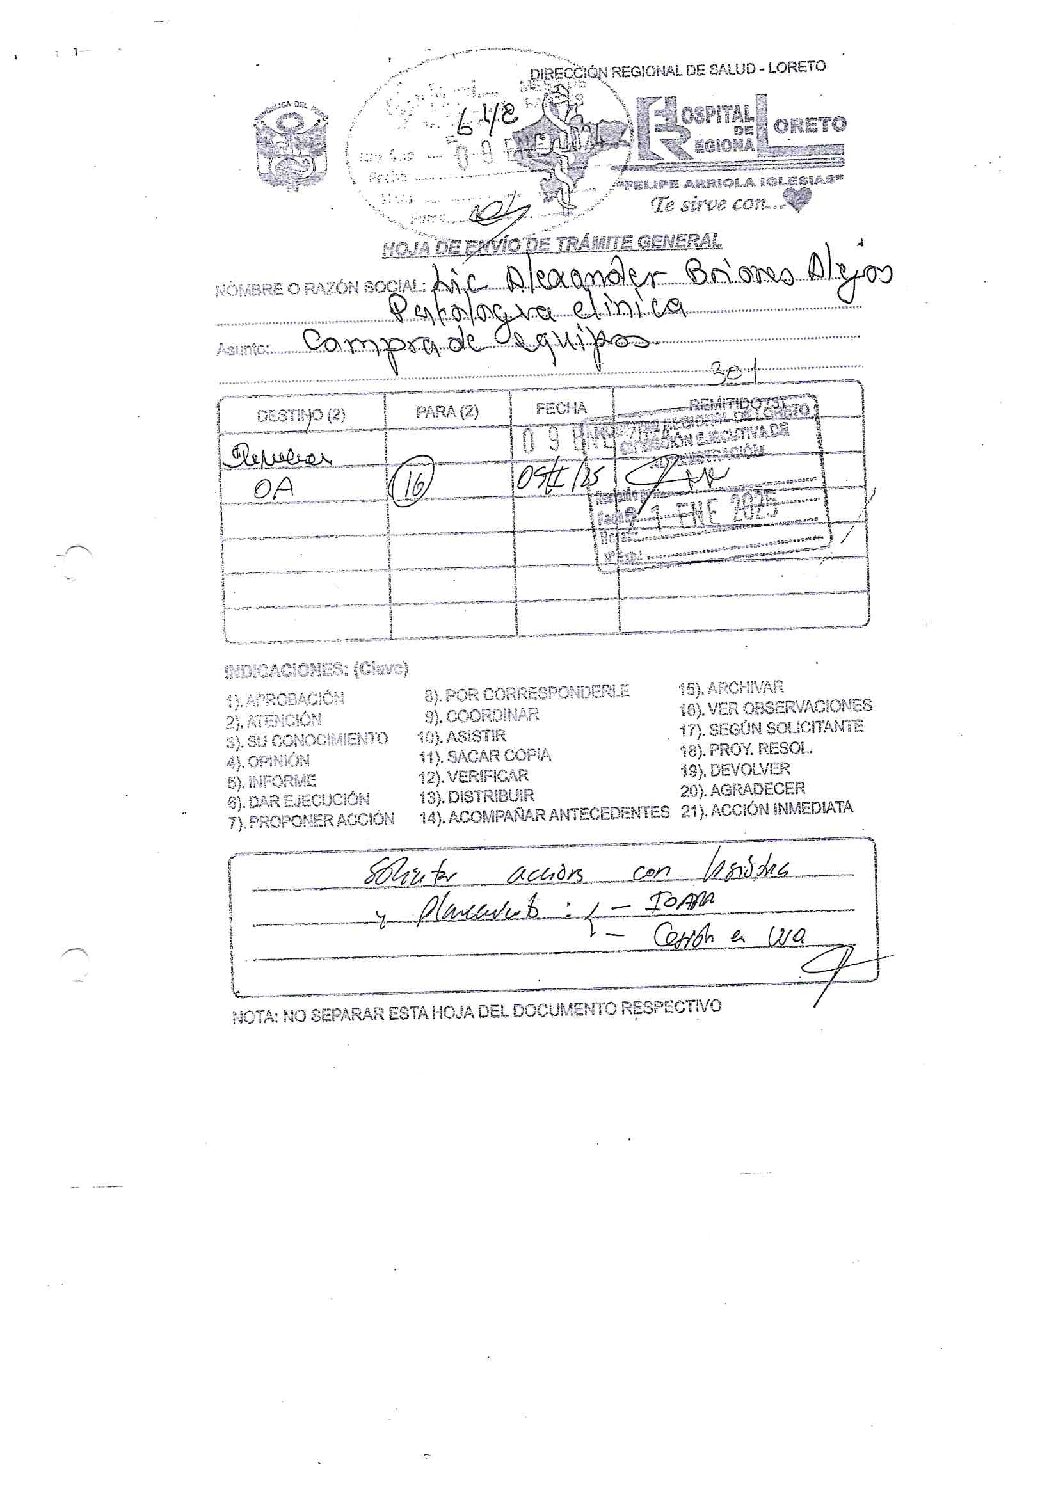 DIRECCIÓN REGIONAL DE SALUD - LORETO
648
HOSPITAL REGIONAL DE LORETO
"FELIPE ARRIOLA IGLESIAS"
Te sirve con...
HOJA DE ENVÍO DE TRÁMITE GENERAL
NOMBRE O RAZÓN SOCIAL: Lic Alexander Briones Alejos
Patologia clinica
Asunto: Compra de equipos
301
DESTINO (2) PARA (2) FECHA REMITIDO (3)
09 ENE
OA 16 09/I/25
DIRECCIÓN EJECUTIVA DE
ADMINISTRACIÓN
1 ENE 2025
INDICACIONES: (Clave)
1). APROBACIÓN 8). POR CORRESPONDERLE 15). ARCHIVAR
2). ATENCIÓN 9). COORDINAR 16). VER OBSERVACIONES
3). SU CONOCIMIENTO 10). ASISTIR 17). SEGÚN SOLICITANTE
4). OPINIÓN 11). SACAR COPIA 18). PROY. RESOL.
5). INFORME 12). VERIFICAR 19). DEVOLVER
6). DAR EJECUCIÓN 13). DISTRIBUIR 20). AGRADECER
7). PROPONER ACCIÓN 14). ACOMPAÑAR ANTECEDENTES 21). ACCIÓN INMEDIATA
Solicitar acciones con
y Planeamiento : - IOARR
- Cesión en uso
NOTA: NO SEPARAR ESTA HOJA DEL DOCUMENTO RESPECTIVO